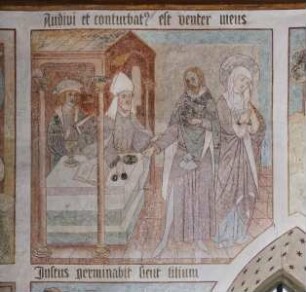 Audivi et conturbat? est venter meus
Justus germinabit sicut lilium